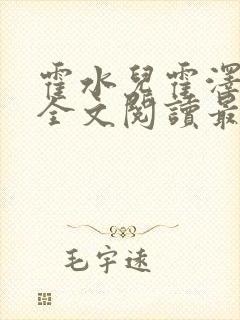 霍水兒霍澤
全文閱讀最
毛宇遠